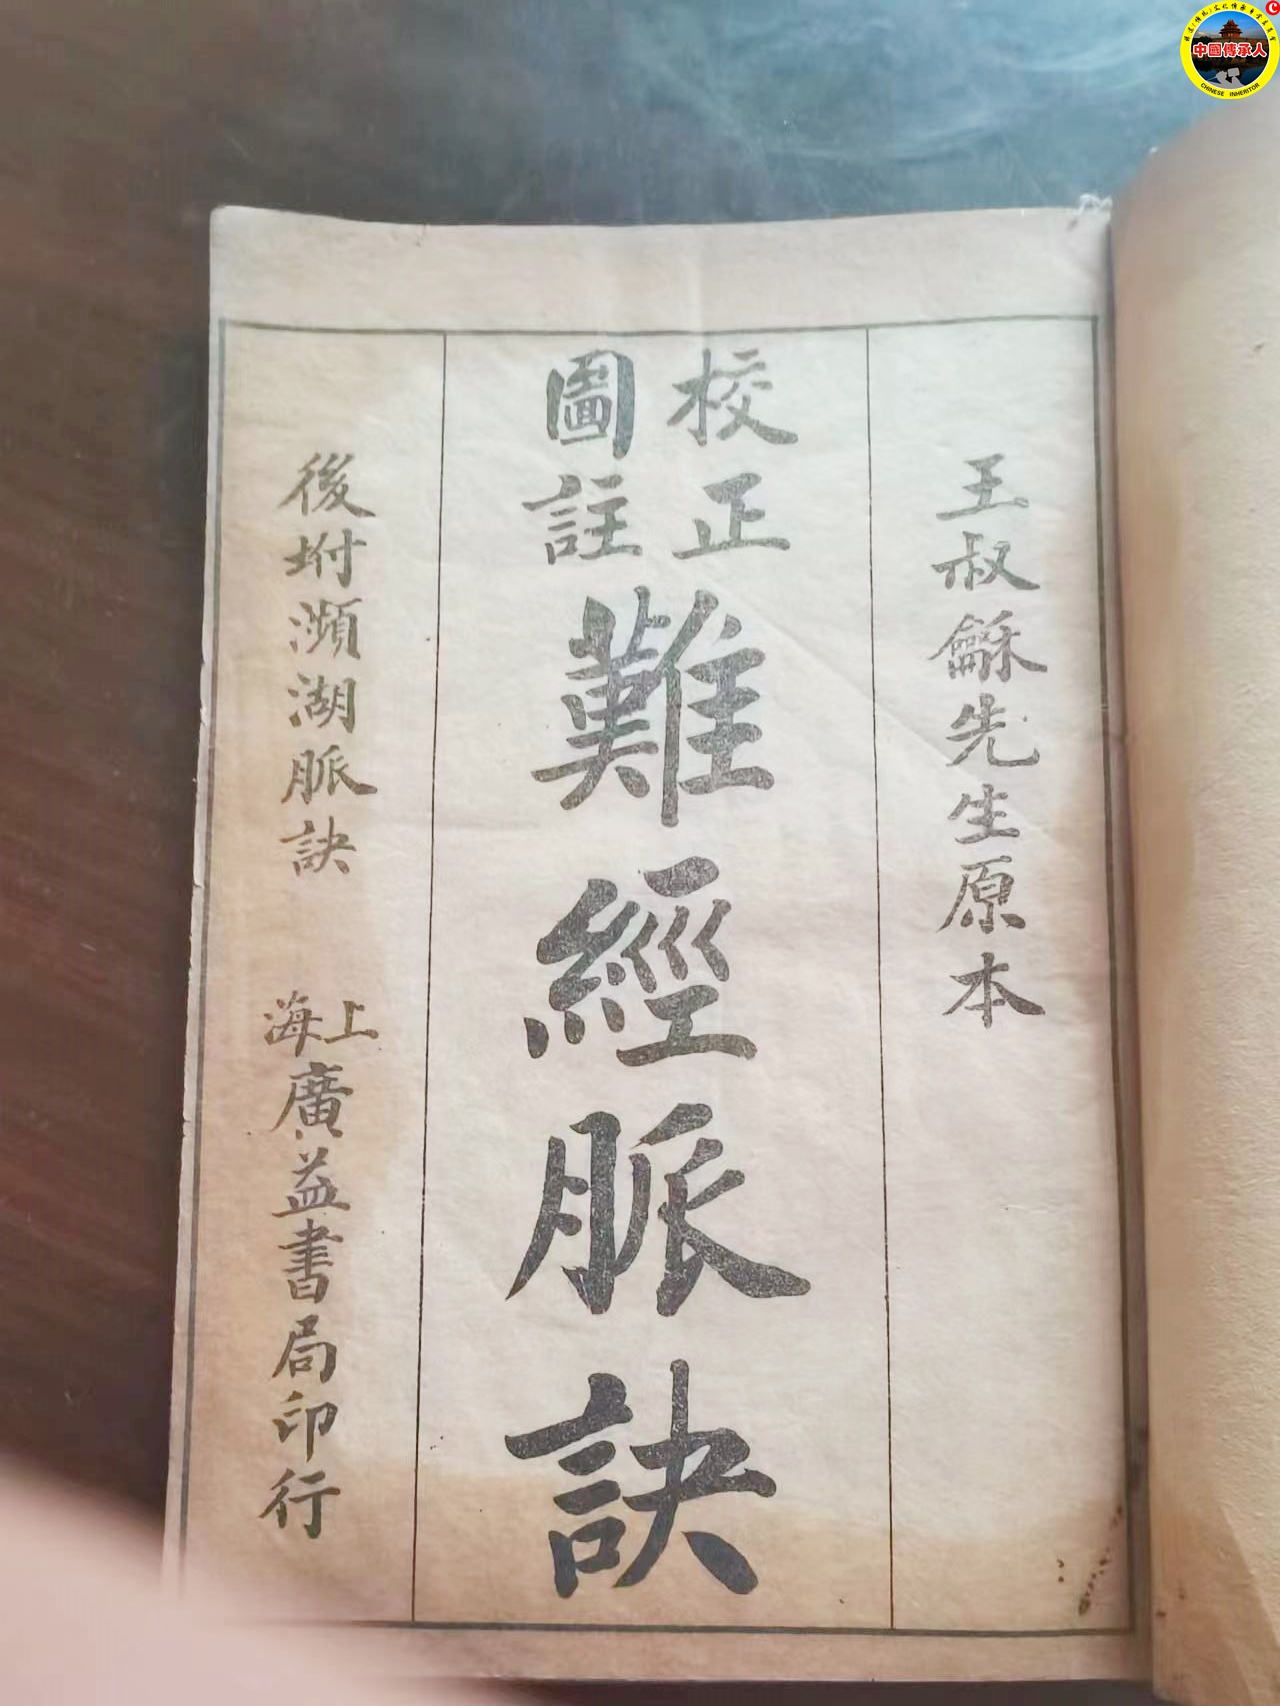 王叔龢先生原本
校正
圖註
難經脈訣
後坿瀕湖脈訣
上海
廣益書局印行
中國傳承人
CHINESE INHERITOR